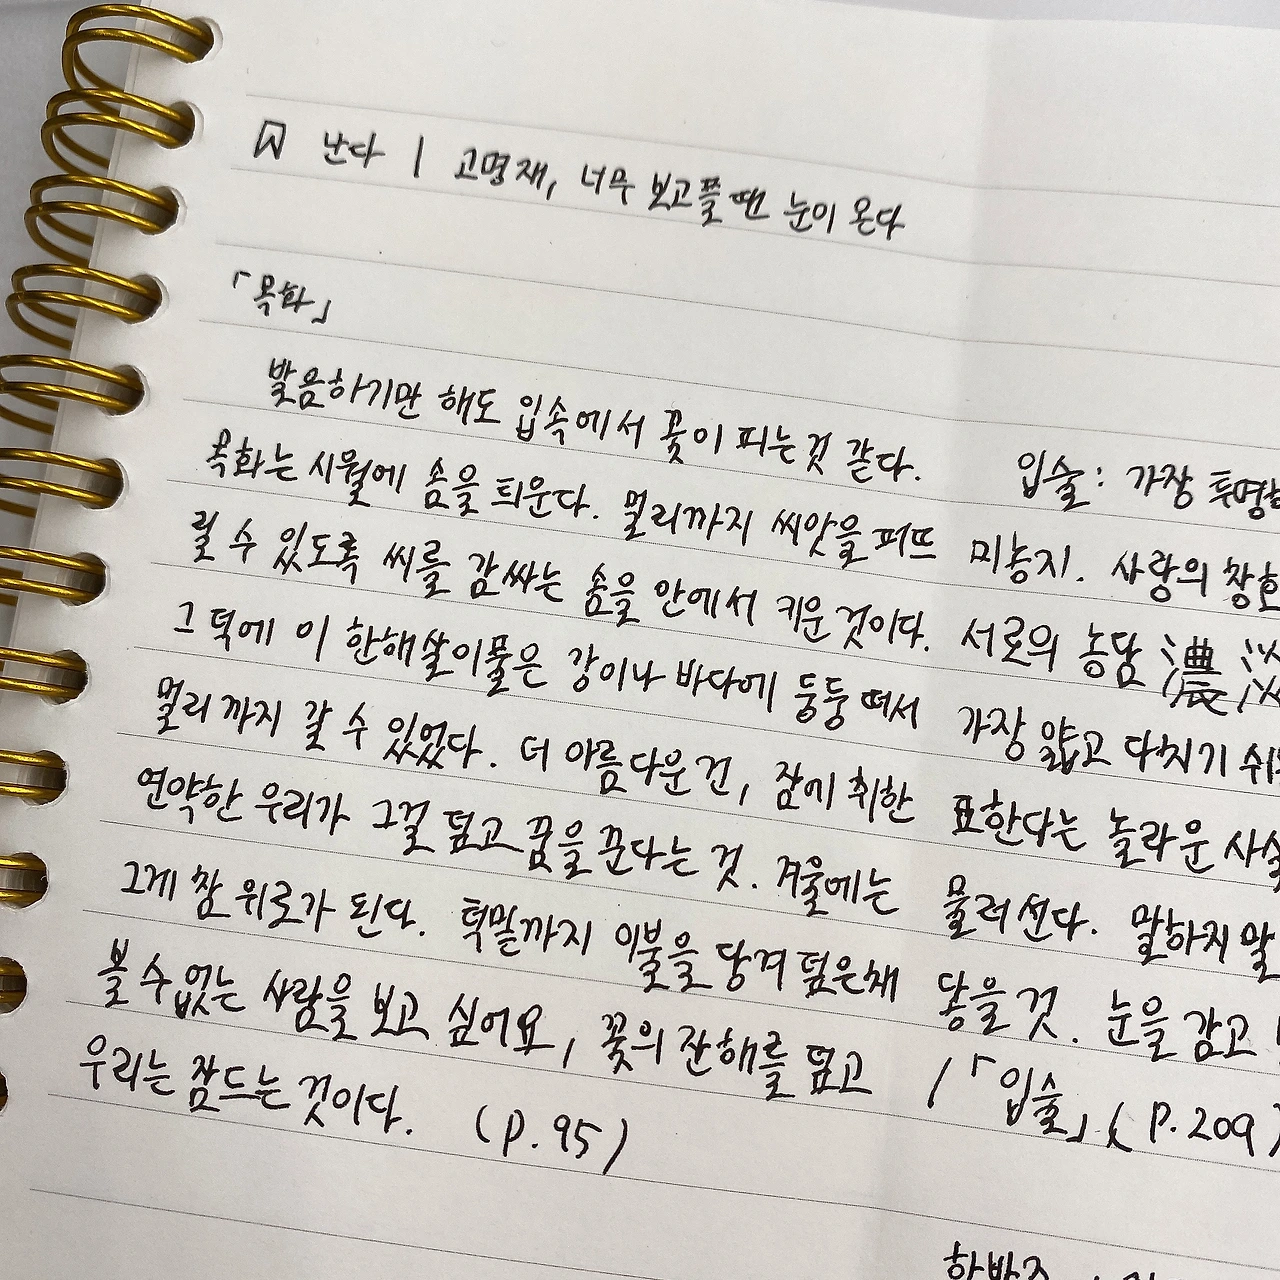 난다 | 고명재, 너무 보고플 땐 눈이 온다
「목화」
발음하기만 해도 입속에서 꽃이 피는 것 같다.
목화는 시월에 솜을 틔운다. 멀리까지 씨앗을 퍼뜨
릴 수 있도록 씨를 감싸는 솜을 안에서 키운 것이다.
그 덕에 이 한해살이풀은 강이나 바다에 둥둥 떠서
멀리까지 갈 수 있었다. 더 아름다운 건, 잠에 취한
연약한 우리가 그걸 덮고 꿈을 꾼다는 것. 겨울에는
그게 참 위로가 된다. 턱밑까지 이불을 당겨 덮은 채
볼 수 없는 사람을 보고 싶어요, 꽃의 잔해를 덮고
우리는 잠드는 것이다. (p.95)
입술: 가장 투명
미농지. 사랑의 창호
서로의 농담 濃淡
가장 얇고 다치기 쉬
표한다는 놀라운 사실
물러선다. 말하지 말
닿을 것. 눈을 감고
/「입술」(p.209)